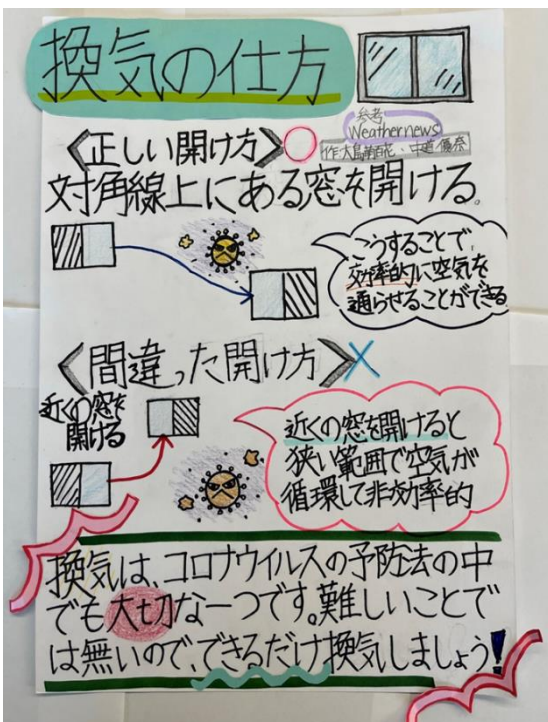 換気の仕方
参考
Weathernews
〈正しい開け方〉○
対角線上にある窓を開ける。
こうすることで、
効率的に空気を
通らせることができる
〈間違った開け方〉×
近くの窓を
開ける
近くの窓を開けると
狭い範囲で空気が
循環して非効率的
換気は、コロナウイルスの予防法の中
でも大切な一つです。難しいことで
は無いので、できるだけ換気しましょう!